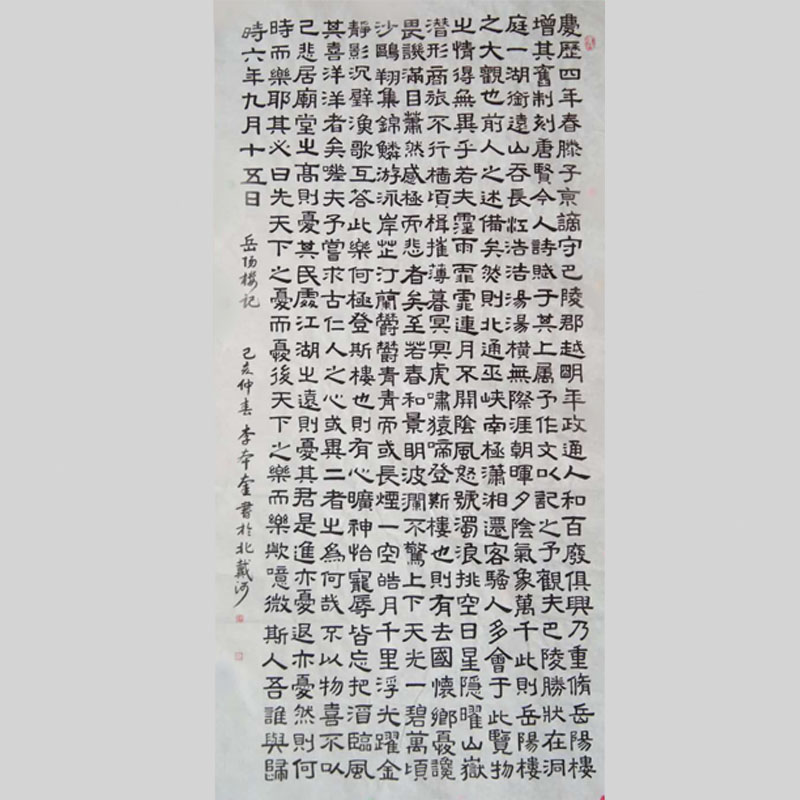 慶歷四年春滕子京謫守巴陵郡越明年政通人和百廢俱興乃重脩岳陽樓
增其舊制刻唐賢今人詩賦于其上属予作文以記之予觀夫巴陵勝狀在洞
庭一湖銜遠山吞長江浩浩湯湯橫無際涯朝暉夕陰氣象萬千此則岳陽樓
之大觀也前人之述備矣然則北通巫峽南極瀟湘遷客騷人多會于此覽物
之情得無異乎若夫霪雨霏霏連月不開陰風怒號濁浪排空日星隱曜山嶽
潛形商旅不行檣傾楫摧薄暮冥冥虎嘯猿啼登斯樓也則有去國懷鄉憂讒
畏譏滿目蕭然感極而悲者矣至若春和景明波瀾不驚上下天光一碧萬頃
沙鷗翔集錦鱗游泳岸芷汀蘭鬱鬱青青而或長煙一空皓月千里浮光躍金
靜影沉璧漁歌互答此樂何極登斯樓也則有心曠神怡寵辱皆忘把酒臨風
其喜洋洋者矣嗟夫予嘗求古仁人之心或異二者之為何哉不以物喜不以
己悲居廟堂之高則憂其民處江湖之遠則憂其君是進亦憂退亦憂然則何
時而樂耶其必曰先天下之憂而憂後天下之樂而樂歟噫微斯人吾誰與歸
時六年九月十五日 岳陽樓記 己亥仲春李本奎書於北戴河